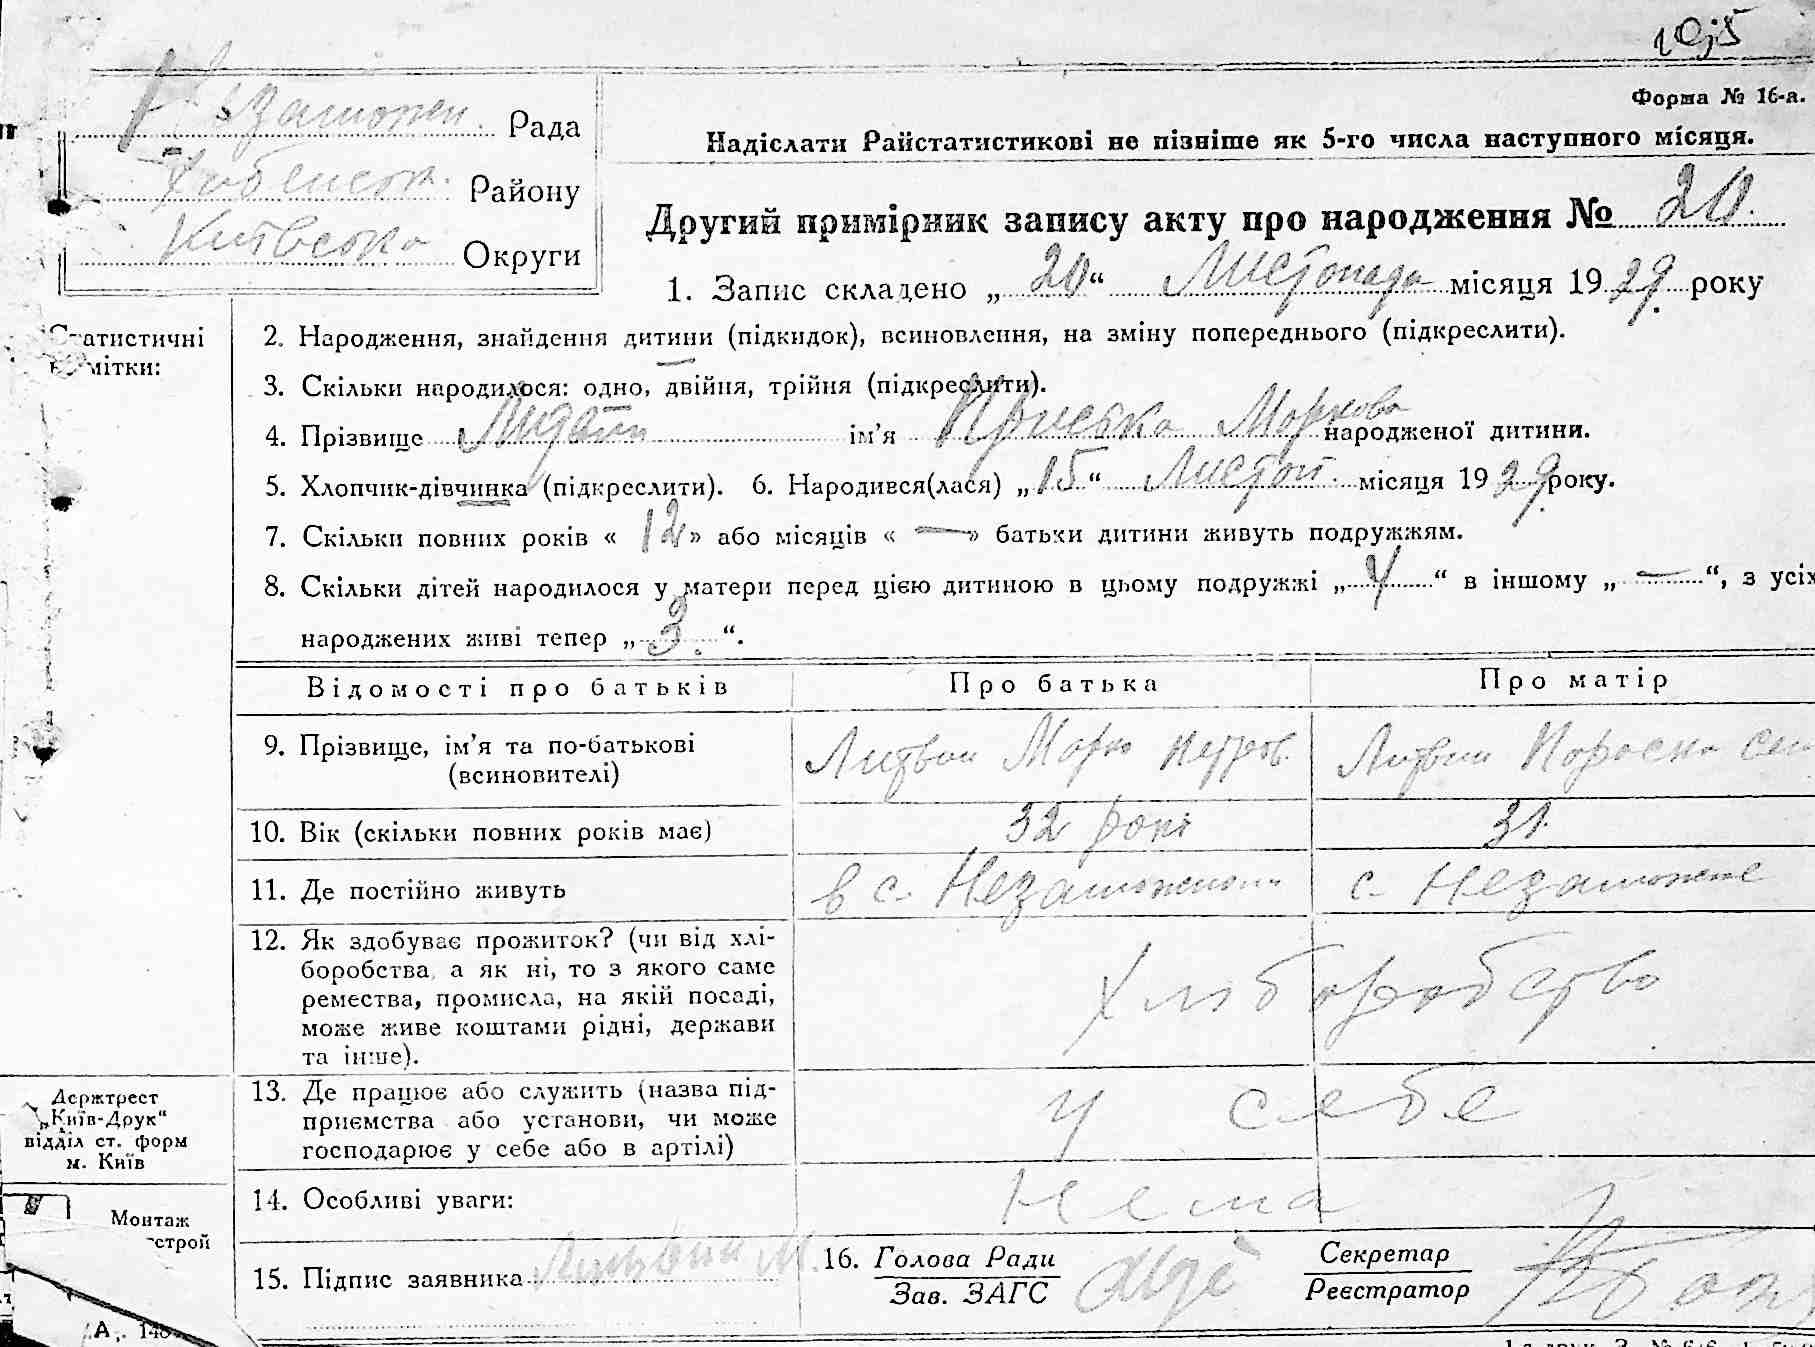 Форма № 16-а.
Незаможн. Рада
Надіслати Райстатистикові не пізніше як 5-го числа наступного місяця.
Району
Київська Округи
Другий примірник запису акту про народження № 20.
1. Запис складено „20“ Листопада місяця 1929. року
Статистичні
2. Народження, знайдення дитини (підкидок), всиновлення, на зміну попереднього (підкреслити).
3. Скільки народилося: одно, двійня, трійня (підкреслити).
4. Прізвище ім’я Пріська Маркова народженої дитини.
5. Хлопчик-дівчинка (підкреслити). 6. Народився(лася) „15“ Листоп. місяця 1929. року.
7. Скільки повних років « 12 » або місяців « — » батьки дитини живуть подружжям.
8. Скільки дітей народилося у матери перед цією дитиною в цьому подружжі „ 4 “ в іншому „ — “, з усіх
народжених живі тепер „ 3. “.
Відомості про батьків Про батька Про матір
9. Прізвище, ім’я та по-батькові
(всиновителі)
Литвин Марко Петров.
Литвин
10. Вік (скільки повних років має) 32 роки 31.
11. Де постійно живуть в с. с. Незаможне
12. Як здобуває прожиток? (чи від хлі-
боробства, а як ні, то з якого саме
ремества, промисла, на якій посаді,
може живе коштами рідні, держави
та інше).
Хліборобство
13. Де працює або служить (назва під-
приємства або установи, чи може
господарює у себе або в артілі)
у себе
14. Особливі уваги: Нема
15. Підпис заявника Литвин М.
16. Голова Ради
Зав. ЗАГС
Секретар
Реєстратор
Держтрест
„Київ-Друк“
відділ ст. форм
м. Київ
Монтаж
строй